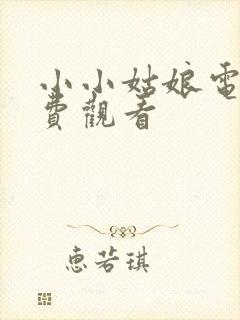 小小姑娘電
費觀看
惠若琪